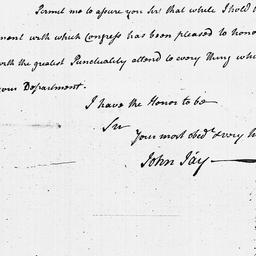 Permit me to assure you Sir that while I hold
ment with which Congress has been pleased to hono
with the greatest Punctuality attend to every thing whic
your Department.
I have the Honor to be
Sir
Your most obedt & very h
John Jay